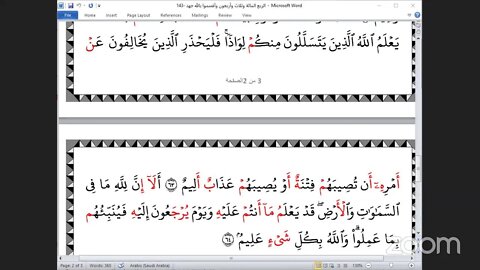 الربع المائة وثلاث وأربعون وأقسموا بالله جهد -143 - Microsoft Word
File Home Insert Page Layout References Mailings Review View
يَعْلَمُ ٱللَّهُ ٱلَّذِينَ يَتَسَلَّلُونَ مِنكُمْ لِوَاذًاۚ فَلْيَحْذَرِ ٱلَّذِينَ يُخَالِفُونَ عَنْ
3 من 2الصفحة
أَمْرِهِۦٓ أَن تُصِيبَهُمْ فِتْنَةٌ أَوْ يُصِيبَهُمْ عَذَابٌ أَلِيمٌ ٦٣ أَلَآ إِنَّ لِلَّهِ مَا فِى
ٱلسَّمَٰوَٰتِ وَٱلْأَرْضِۖ قَدْ يَعْلَمُ مَآ أَنتُمْ عَلَيْهِ وَيَوْمَ يُرْجَعُونَ إِلَيْهِ فَيُنَبِّئُهُم
بِمَا عَمِلُوا۟ۗ وَٱللَّهُ بِكُلِّ شَىْءٍ عَلِيمٌۢ ٦٤
zoom
Page: 2 of 3 Words: 365 Arabic (Saudi Arabia) 130%